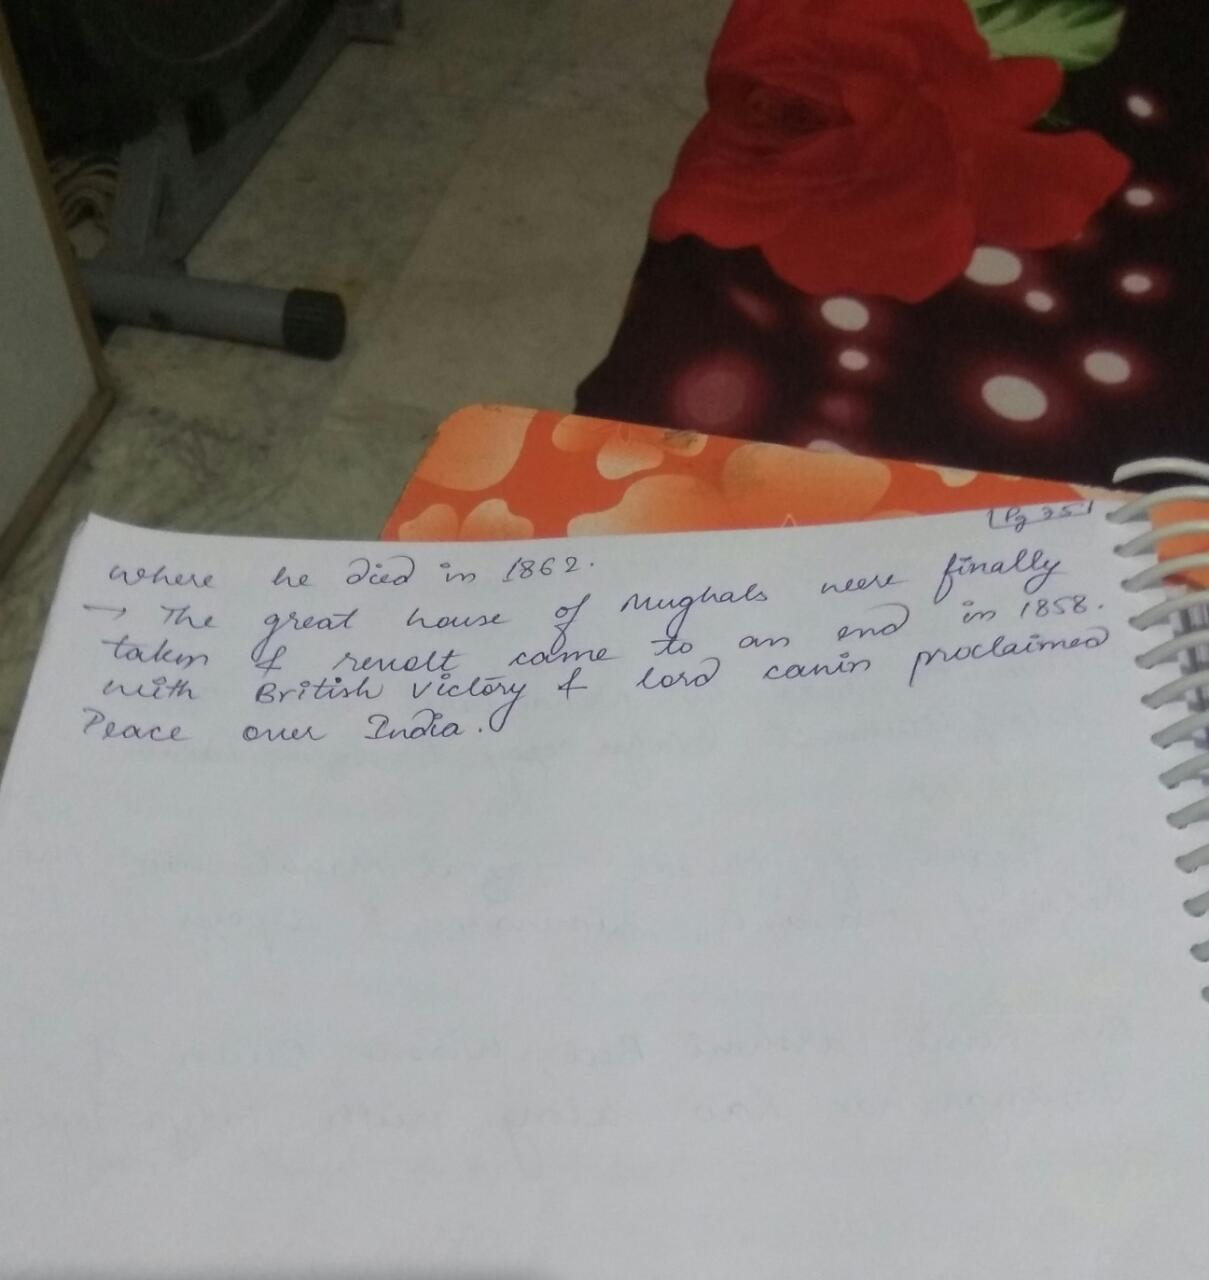 Pg 35
where he died in 1862.
→ The great house of Mughals were finally
taken & revolt came to an end in 1858.
with British Victory & lord canin proclaimed
Peace over India.